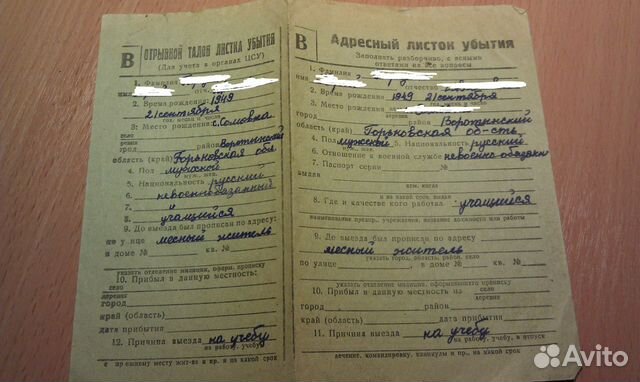 В
ОТРЫВНОЙ ТАЛОН ЛИСТКА УБЫТИЯ
(Для учета в органах ЦСУ)
1. Фамилия
имя отч.
2. Время рождения: 1949
21 сентября
год, месяц и число
3. Место рождения: с. Соловка
село
город район Воротынский
область (край) Горьковская обл.
4. Пол мужской
муж., жен.
5. Национальность русский
6. невоеннообязанный
7. и
8. учащийся
9. До выезда был прописан по адресу:
по улице месный житель
в доме № кв. №
указать отделение милиции, оформ. прописку
10. Прибыл в данную местность:
село
деревня
город
край (область)
дата прибытия
12. Причина выезда на учебу
на работу, учебу
В
Адресный листок убытия
Заполнять разборчиво, с ясными
ответами на все вопросы
1. Фамилия
имя отчество
2. Время рождения 1949 21 сентября
3. Место рождения
город район Воротынский
область (край) Горьковская об-сть
4. Пол мужской 5. Национальность русский
6. Отношение к военной службе невоенно-обязан
7. Паспорт серии №
выдан
кем, когда
и на какой срок, выдан
8. Где и в качестве кого работал учащийся
наименование предпр., учреждения, название должности или работы
9. До выезда был прописан по адресу
месный житель
указать город, область, район, село
по улице в доме № кв. №
указать отделение милиции, оформлявшего прописку
10. Прибыл в данную местность из село
деревня
город район
край (область) дата прибытия
11. Причина выезда на учебу
на работу, учебу, в отпуск
лечение, командировку, каникулы и пр., на какой срок
Avito